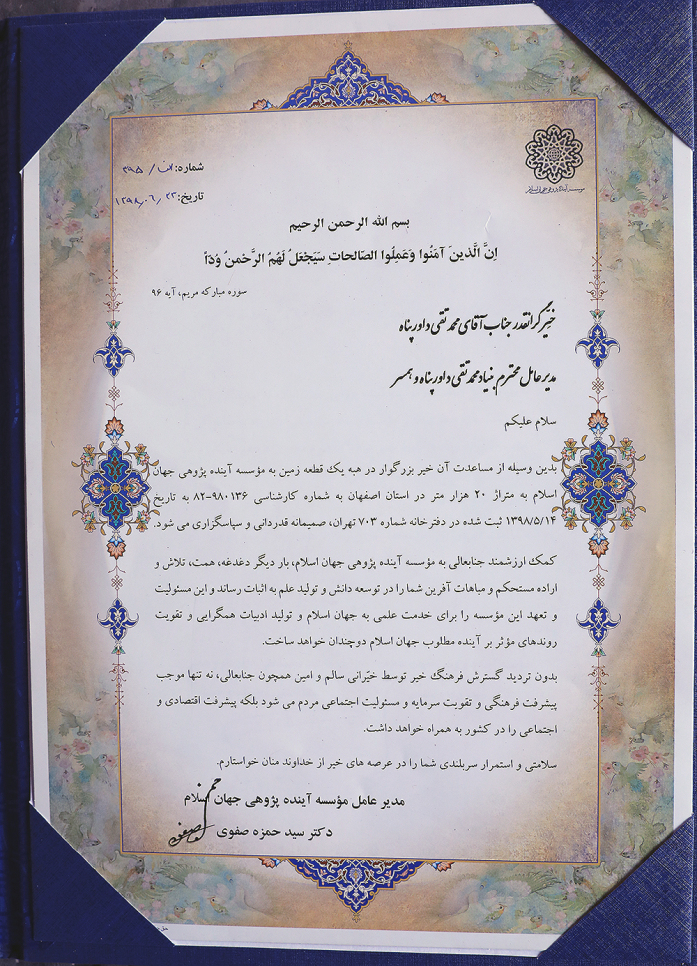 موسسه آینده پژوهی جهان اسلام
شماره: الف / ۳۹۵
تاریخ: ۱۳۹۸/۰۶/۲۳
بسم الله الرحمن الرحیم
اِنَّ الَّذینَ آمَنُوا وَعَمِلُوا الصّالحاتِ سَیَجْعَلُ لَهُمُ الرَّحْمنُ وُدّاً
سوره مبارکه مریم، آیه ۹۶
خیّر گرانقدر جناب آقای محمدتقی داورپناه
مدیرعامل محترم بنیاد محمدتقی داورپناه و همسر
سلام علیکم
بدین وسیله از مساعدت آن خیر بزرگوار در هبه یک قطعه زمین به مؤسسه آینده پژوهی جهان
اسلام به متراژ ۲۰ هزار متر در استان اصفهان به شماره کارشناسی ۹۸۰۱۳۶-۸۲ به تاریخ
۱۳۹۸/۵/۱۴ ثبت شده در دفترخانه شماره ۷۰۳ تهران، صمیمانه قدردانی و سپاسگزاری می شود.
کمک ارزشمند جنابعالی به مؤسسه آینده پژوهی جهان اسلام، بار دیگر دغدغه، همت، تلاش و
اراده مستحکم و مباهات آفرین شما را در توسعه دانش و تولید علم به اثبات رساند و این مسئولیت
و تعهد این مؤسسه را برای خدمت علمی به جهان اسلام و تولید ادبیات همگرایی و تقویت
روندهای مؤثر بر آینده مطلوب جهان اسلام دوچندان خواهد ساخت.
بدون تردید گسترش فرهنگ خیر توسط خیّرانی سالم و امین همچون جنابعالی، نه تنها موجب
پیشرفت فرهنگی و تقویت سرمایه و مسئولیت اجتماعی مردم می شود بلکه پیشرفت اقتصادی و
اجتماعی را در کشور به همراه خواهد داشت.
سلامتی و استمرار سربلندی شما را در عرصه های خیر از خداوند منان خواستارم.
مدیر عامل مؤسسه آینده پژوهی جهان اسلام
دکتر سید حمزه صفوی